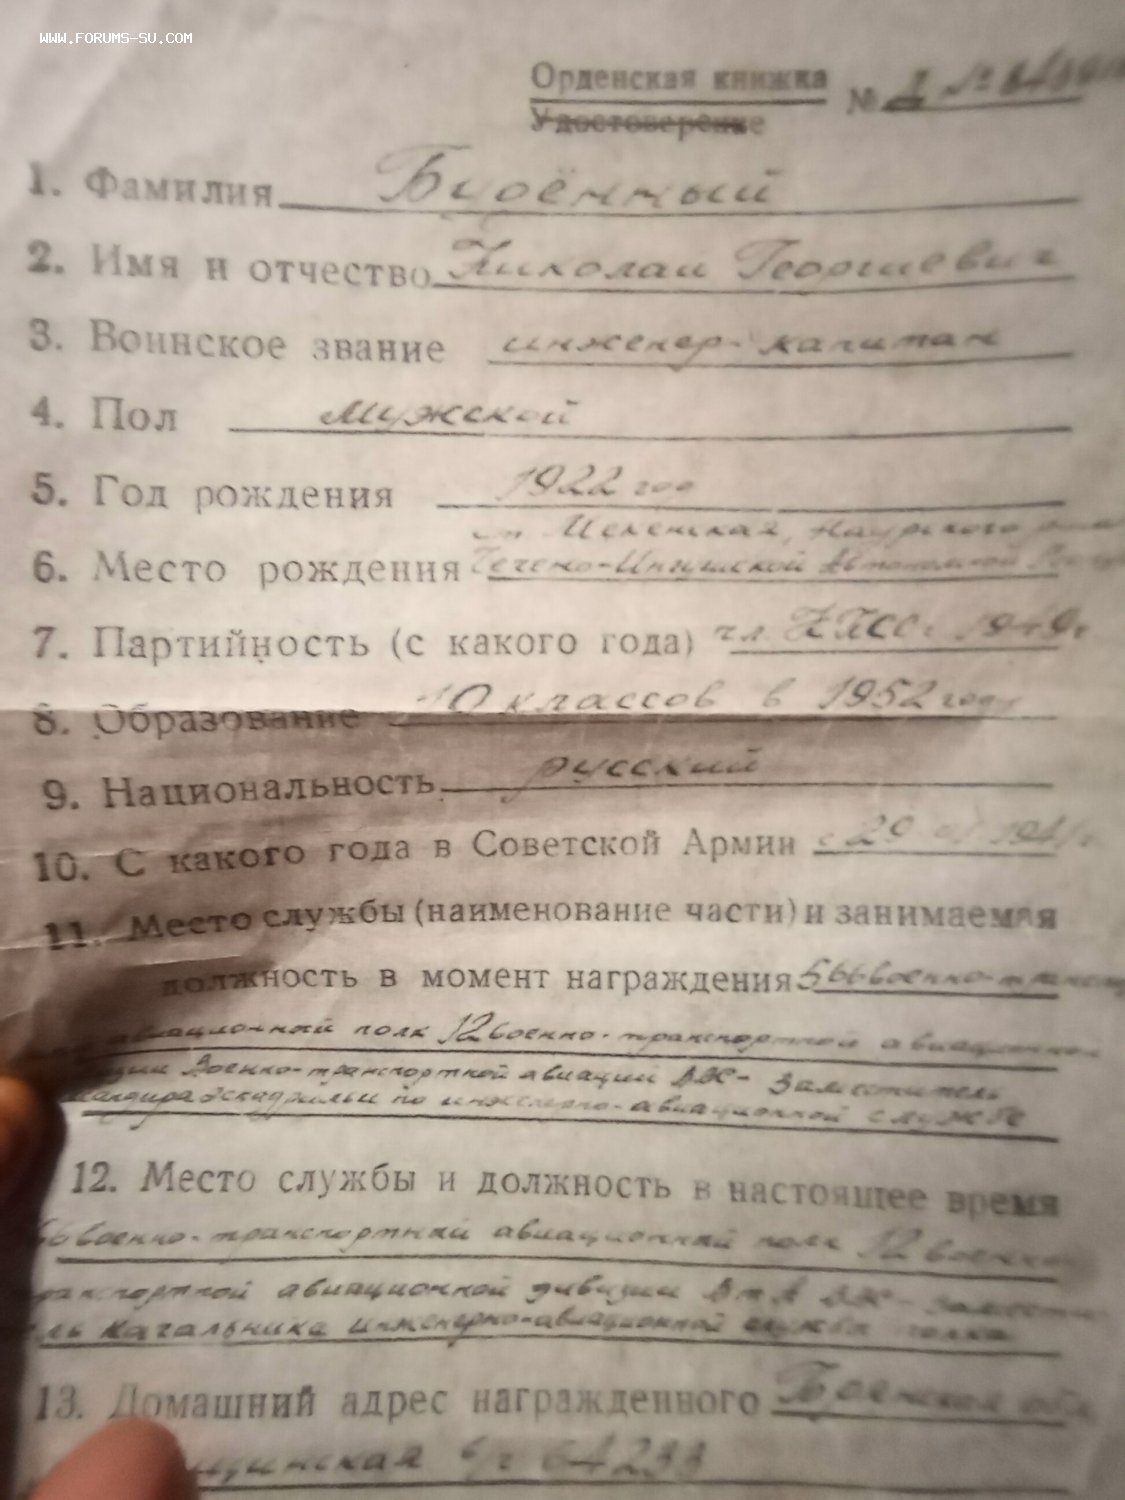 WWW.FORUMS-SU.COM
Орденская книжка № Д №
Удостоверение
1. Фамилия Будённый
2. Имя и отчество Николай Георгиевич
3. Воинское звание инженер-капитан
4. Пол мужской
5. Год рождения 1922 год
Наурского
6. Место рождения Чечено-Ингушской Автономной
7. Партийность (с какого года) чл. КПСС с 1949г
8. Образование 10 классов в 1952 году
9. Национальность русский
10. С какого года в Советской Армии с 1941г.
11. Место службы (наименование части) и занимаемая
должность в момент награждения 566 военно-
авиационный полк 12 военно-транспортной авиационной
Военно-транспортной авиации ВВС - Заместитель
эскадрильи по инженерно-авиационной службе
12. Место службы и должность в настоящее время
военно-транспортный авиационный полк 12 военно
авиационной дивизии ВТА ВВС -
начальника инженерно-авиационной службы полка
13. Домашний адрес награжденного Брянская обл
в/ч